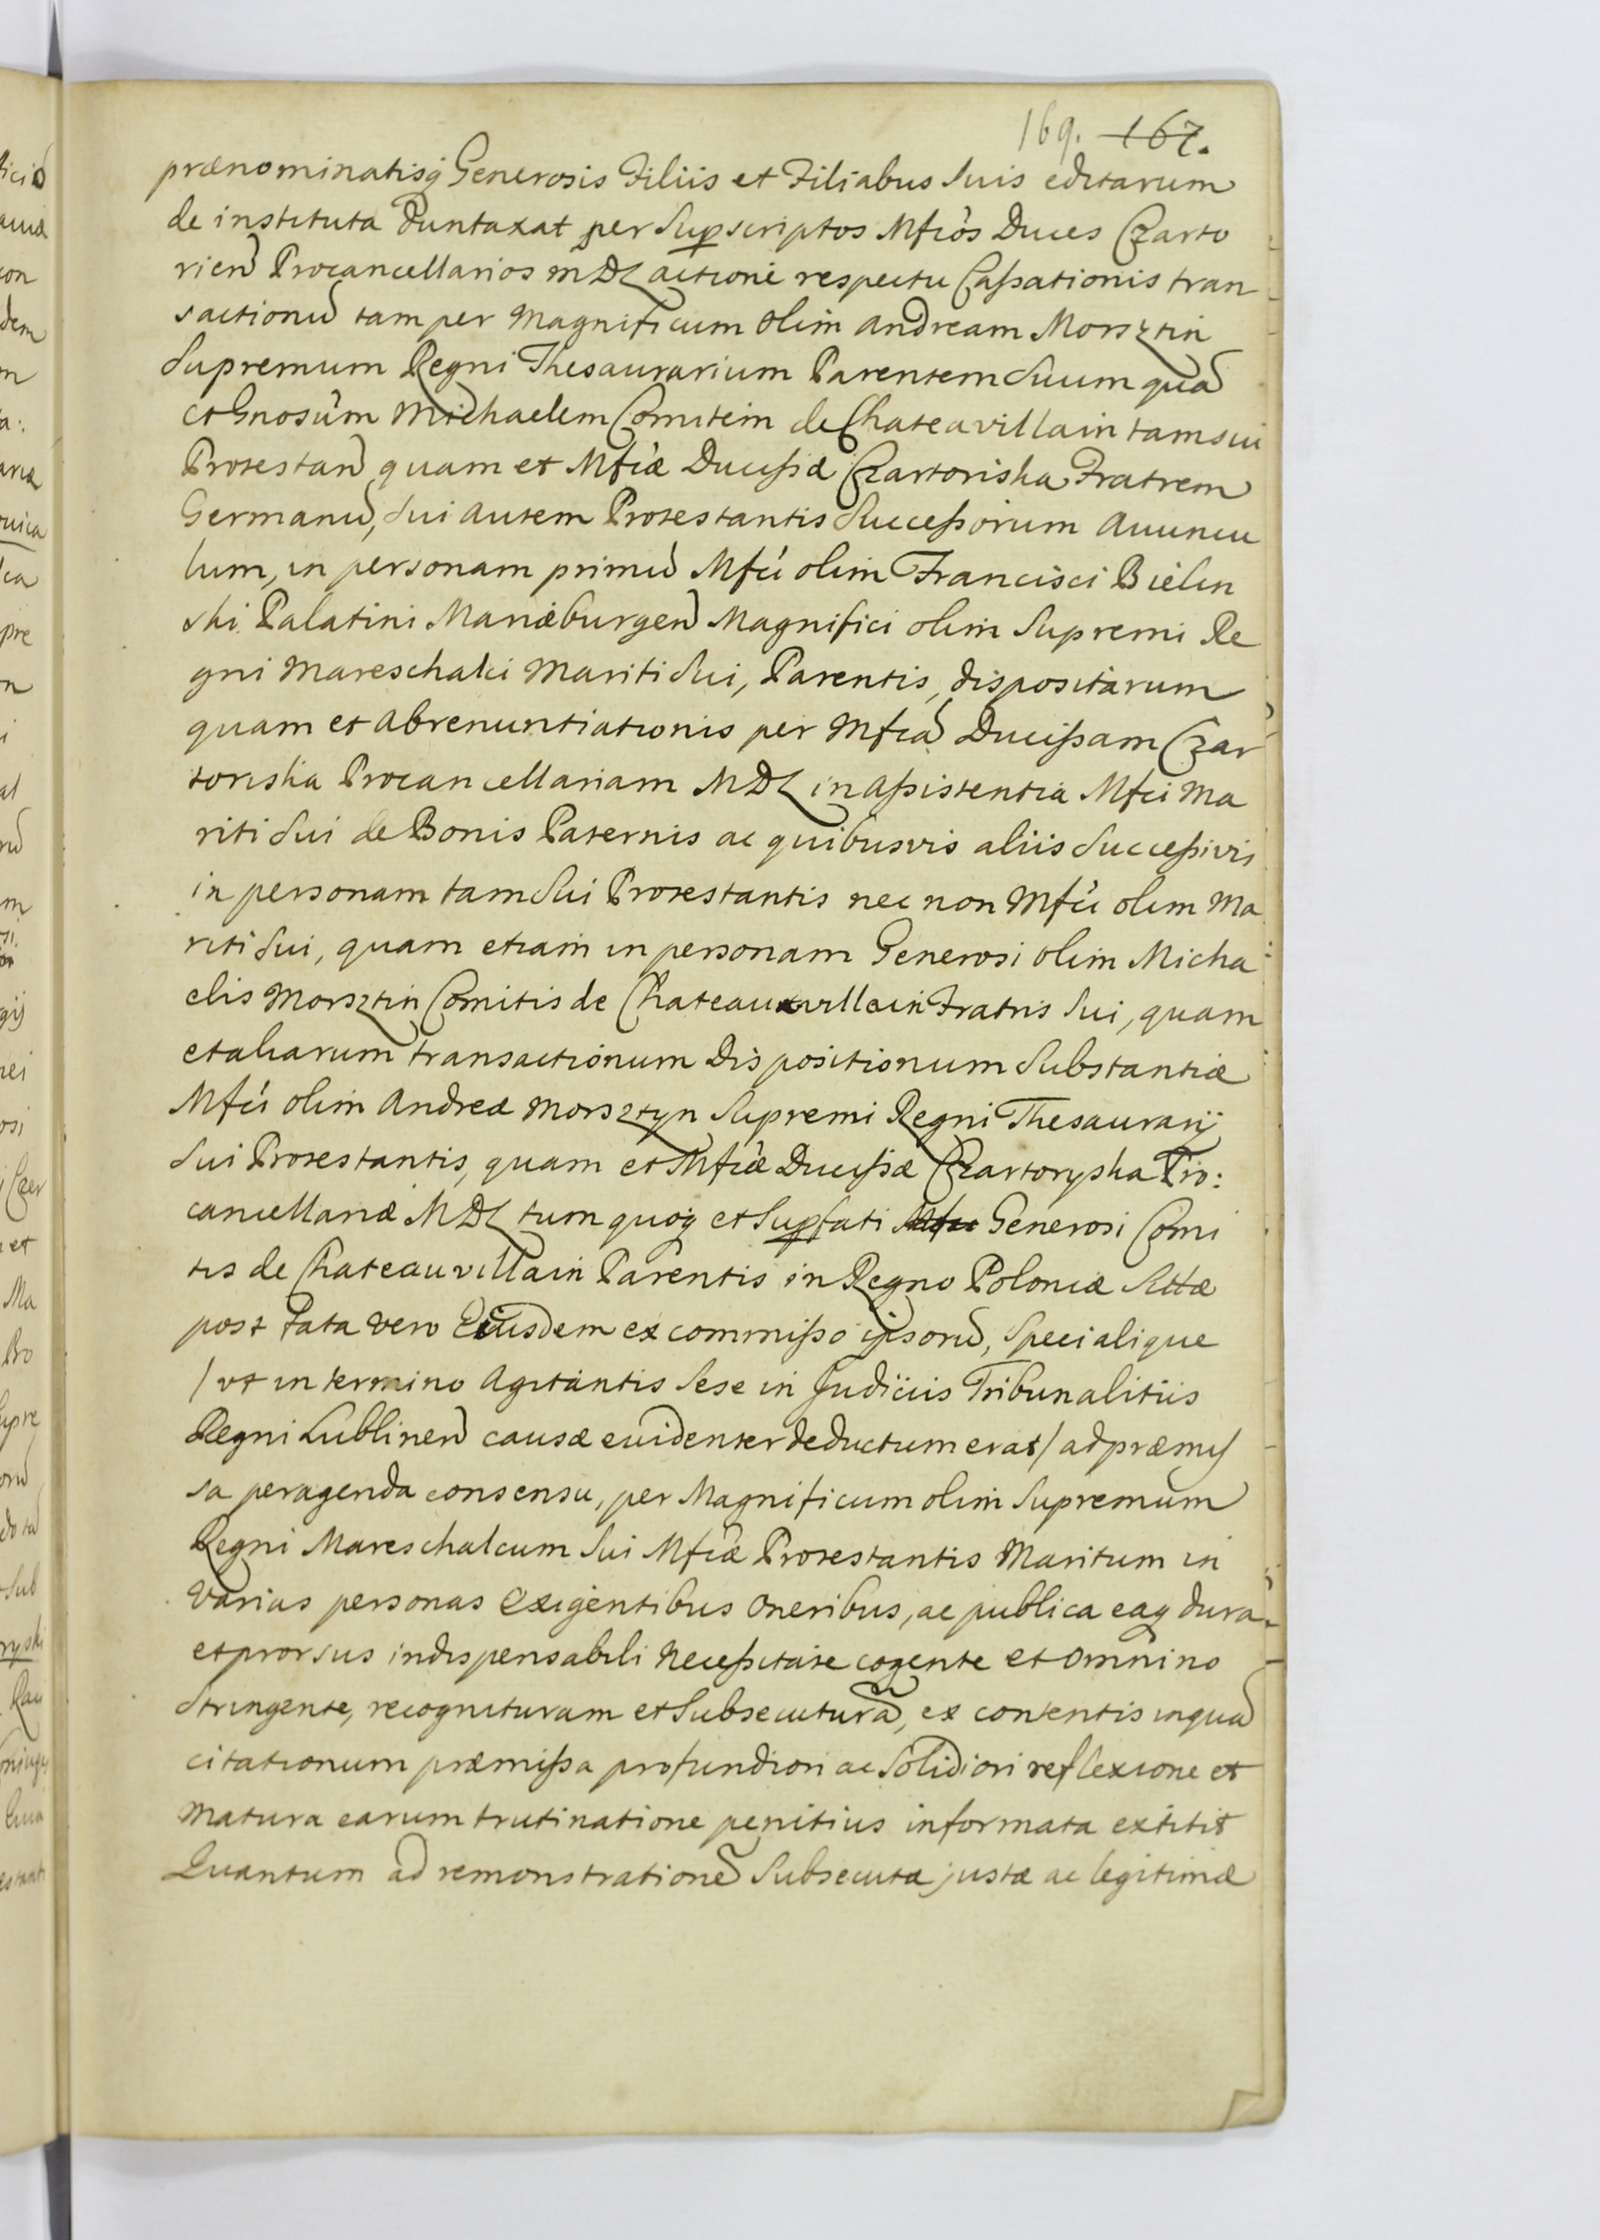 169. 167.
prænominatisq́ Generosis Filiis et Filiabus Suis editarum
de instituta duntaxat per Supscriptos Mfcòs Duces Czarto
rien̄ Procancellarios MDL actione respectu Cassationis tran
sactionū tam per Magnificum olim Andream Morsztin
Supremum Regni Thesaurarium Parentem Suum quā
et Gnosùm Michaelem Comitem de Chateavillain tam sui
Protestan̄ quam et Mfcæ Ducissæ Czartoriska Fratrem
Germanū, Sui autem Protestantis Successorum Auuncu
lum, in personam primū Mfci olim Francisci Bielin
ski Palatini Mariæburgen̄ Magnifici olim Supremi Re
gni Mareschalci Mariti Sui, Parentis, dispositarum
quam et abrenuntiationis per Mfcā Ducissam Czar
toriska Procancellariam MDL in assistentia Mfci Ma
riti Sui de Bonis Paternis ac quibusvis aliis Successivis
in personam tam Sui Protestantis nec non Mfci olim Ma
riti Sui, quam etiam in personam Generosi olim Micha
elis Morsztin Comitis de Chateauvillain Fratris Sui, quam
et aliarum transactionum Dispositionum Substantiæ
Mfci olim Andreæ Morsztyn Supremi Regni Thesaurarij
Sui Protestantis, quam et Mfcæ Ducissæ Czartoryska Pro:
cancellariæ MDL tum quoq́ et Supfati Mfci Generosi Comi
tis de Chateauvillain Parentis in Regno Poloniæ Sittæ
post Fata vero Eiusdem ex commisso ipsorū, Specialique
/ ut in termino Agitantis Sese in Judiciis Tribunalitiis
Regni Lublinen̄ causæ euidenter deductum erat / ad præmis
sa peragenda consensu, per Magnificum olim Supremum
Regni Mareschalcum Sui Mfcæ Protestantis Maritum in
Varias personas Exigentibus Oneribus, ac publica eaq́ dura
et prorsus indispensabili Necessitate cogente et omnino
Stringente, recognituram et Subsecuturā, ex contentis inquā
citationum præmissa profundiori ac Solidiori reflexione et
Matura earum trutinatione penitius informata extitit
Quantum ad remonstrationē Subsecutæ justæ ac legitimæ